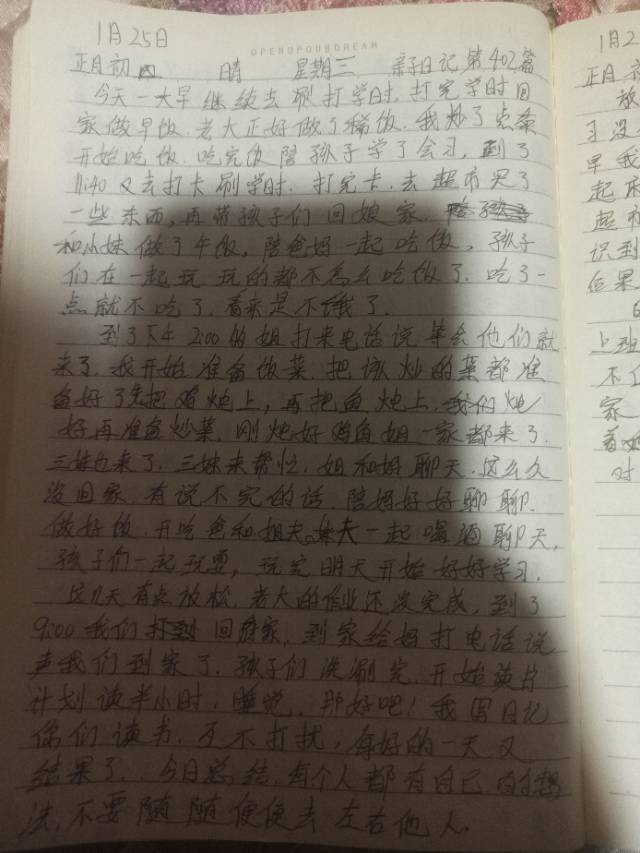 1月25日
OPENUPOURDREAM
正月初四 晴 星期三 亲子日记第402篇
今天一大早继续去刷打学时.打完学时回
家做早饭.老大正好做了稀饭.我炒了点菜
开始吃饭.吃完饭陪孩子学了会习,到了
11:40又去打卡刷学时.打完卡.去超市买了
一些东西,再带孩子们回娘家.
和小妹做了午饭,陪爸妈一起吃饭,孩子
们在一起玩.玩的都不怎么吃饭了.吃了一
点就不吃了.看来是不饿了.
到了下午2:00的姐打来电话说等会他们就
来了.我开始准备饭菜.把该炒的菜都准
备好了先把鸡炖上,再把鱼炖上.我们炖
好再准备炒菜.刚炖好鸡鱼姐一家都来了.
三妹也来了.三妹来帮忙.姐和妈聊天.这么久
没回家.有说不完的话.陪妈好好聊聊.
做好饭.开吃爸和姐夫,妹夫一起喝酒聊天,
孩子们一起玩耍,玩完明天开始好好学习.
这几天有点放松.老大的作业还没完成,到了
9:00我们 回家,到家给妈打电话说
声我们到家了.孩子们洗刷完.开始读书
计划读半小时.睡觉.那好吧!我写日记
你们读书.互不打扰,美好的一天又
结束了.今日总结.每个人都有自己的想
法,不要随随便便去左右他人.
1月2
正月初
放
习没
早我
起床
超市
识到
位果
上班
不了
家
着妈
时